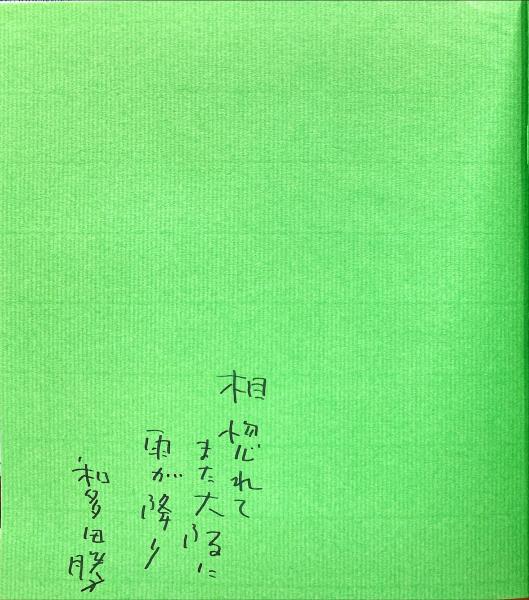 相惚れて
また大ふるに
雨が降り
和多田勝